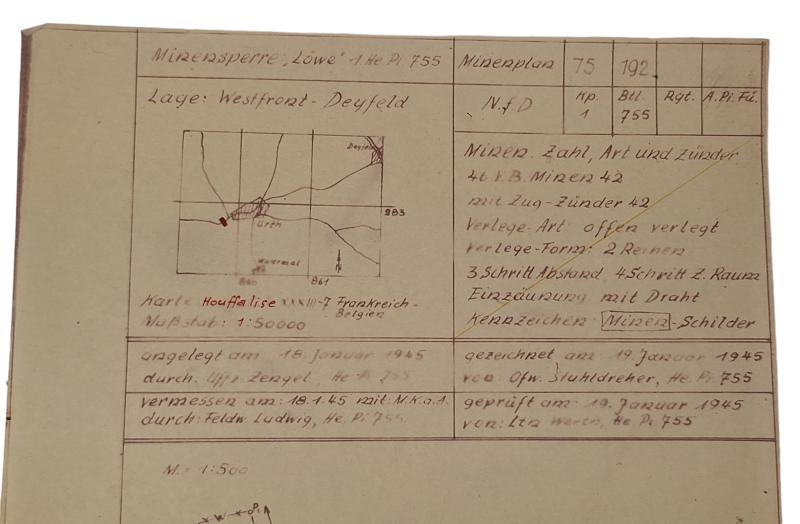 Minensperre „Löwe“ 1. He. Pi 755
Minenplan
75
192
Lage: Westfront - Deyfeld
N.f.D
Kp.
1
Btl.
755
Rgt.
A.Pi.Fü.
Deyfeld
283
Ürth
Wourmal
860
861
N
Karte Houffalise XXXIII-7 Frankreich-
Belgien
Maßstab: 1:50000
Minen. Zahl, Art und Zünder
46 V.B. Minen 42
mit Zug-Zünder 42
Verlege-Art: offen verlegt
Verlege-Form: 2 Reihen
3 Schritt Abstand, 4 Schritt Z. Raum
Einzäunung mit Draht
Kennzeichen: Minen-Schilder
angelegt am 18. Januar 1945
durch: Uffz. Zengel, He. Pi 755
gezeichnet am: 19. Januar 1945
von: Ofw. Stuhldreher, He. Pi 755
vermessen am: 18.1.45 mit: M.K.a.A.
durch: Feldw. Ludwig, He. Pi 755
geprüft am: 19. Januar 1945
von: Ltn. He. Pi 755
M. = 1:500
W
P1